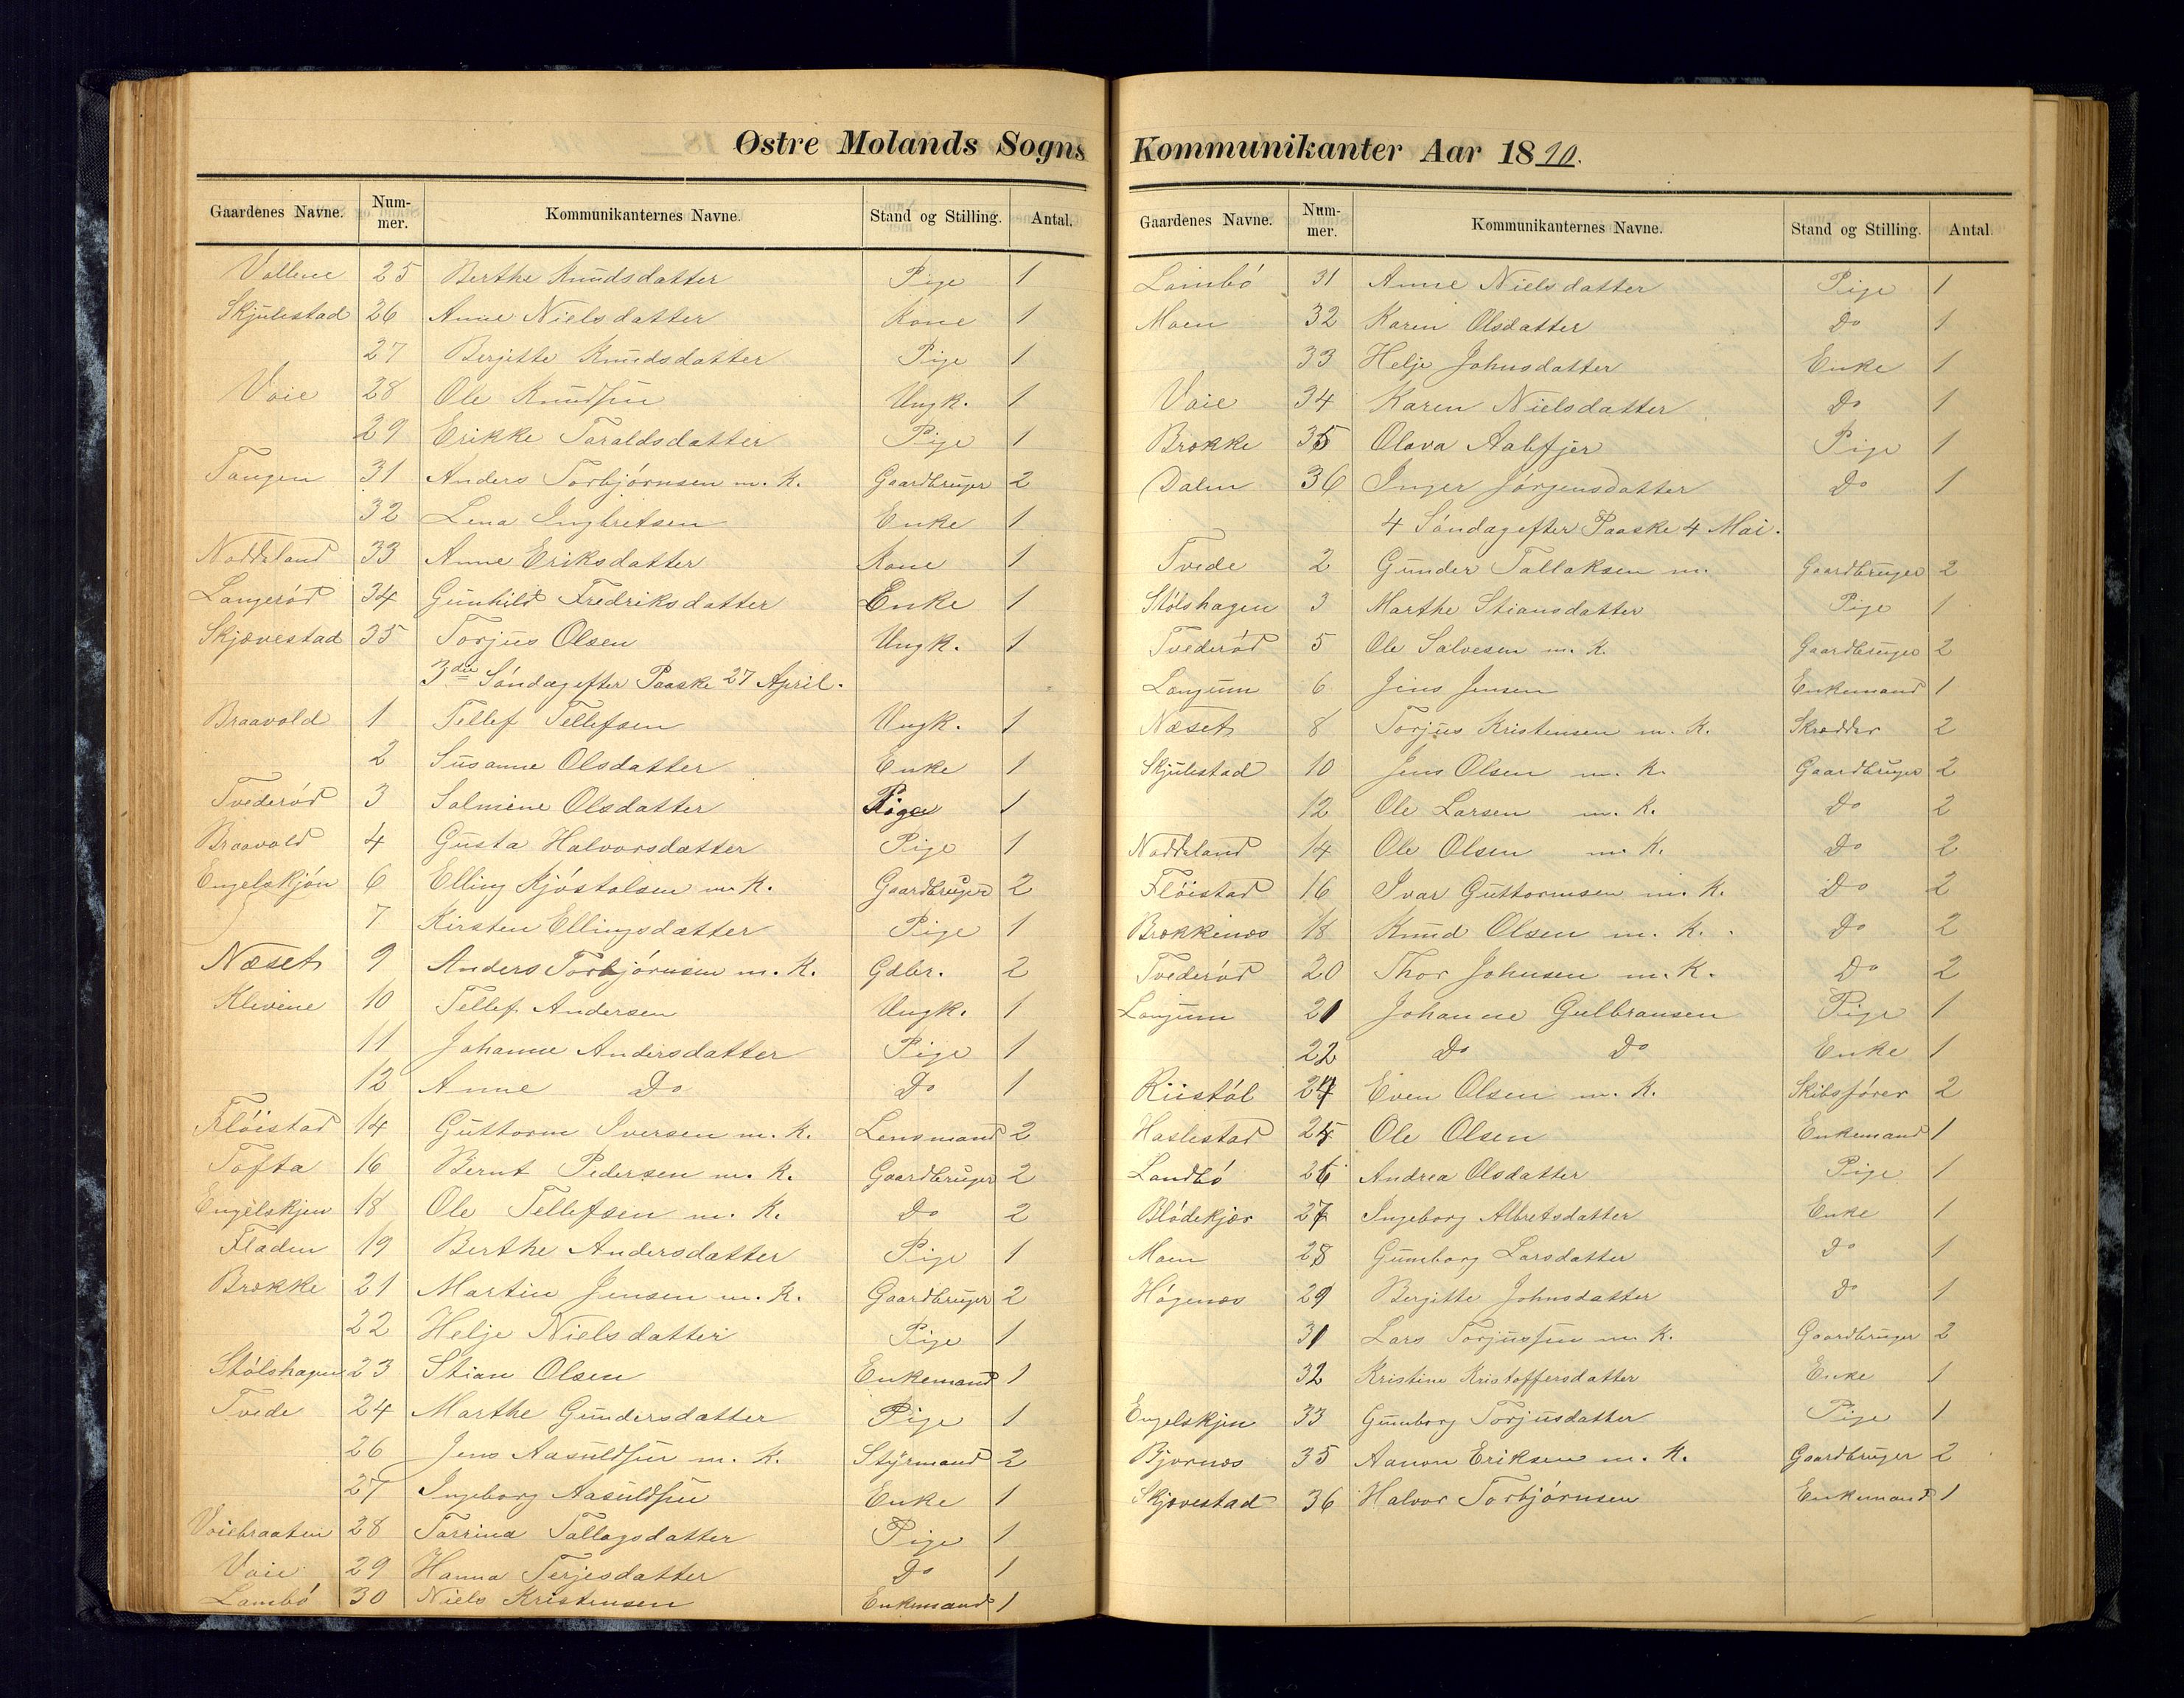 Østre Molands Sogns
Gaardenes Navne. Num-mer. Kommunikanternes Navne. Stand og Stilling. Antal.
Vollene 25 Berthe Knudsdatter Pige 1
Skjulestad 26 Anne Nielsdatter Kone 1
27 Berjitte Knudsdatter Pige 1
Voie 28 Ole Knudsen Ungk. 1
29 Erikke Taraldsdatter Pige 1
Tangen 31 Anders Torbjórnsen m. K. Gaardbruger 2
32 Lena Ingbretsen Enke 1
Noddeland 33 Anne Eriksdatter Kone 1
Langeród 34 Gunhild Fredriksdatter Enke 1
Skjævestad 35 Torjus Olsen Ungk. 1
3die Sóndag efter Paaske 27 April.
Braavold 1 Tellef Tellefsen Ungk. 1
2 Susanne Olsdatter Enke 1
Tvederód 3 Salmine Olsdatter Pige 1
Braavold 4 Gusta Halvorsdatter Pige 1
Engelskjón 6 Elling Kjóstolsen m. K. Gaardbruger 2
7 Kirsten Ellingsdatter Pige 1
Næset 9 Anders Torbjórnsen m. K. Gdbr. 2
Klevene 10 Tellef Andersen Ungk. 1
11 Johanne Andersdatter Pige 1
12 Anne Do Do 1
Flóistad 14 Guttorm Iversen m. K. Lensmand 2
Tofta 16 Bernt Pedersen m. K. Gaardbruger 2
Engelskjen 18 Ole Tellefsen m. K. Do 2
Fladen 19 Berthe Andersdatter Pige 1
Brække 21 Martin Jensen m. K. Gaardbruger 2
22 Helje Nielsdatter Pige 1
Stólshagen 23 Stian Olsen Enkemand 1
Tvede 24 Marthe Gundersdatter Pige 1
26 Jens Aasuldsen m. K. Styrmand 2
27 Ingeborg Aasuldsen Enke 1
Voiebraaten 28 Tarrina Tallagsdatter Pige 1
Voie 29 Hanna Terjesdatter Do 1
Lambó 30 Niels Kristensen Enkemand 1
Kommunikanter Aar 1890.
Gaardenes Navne. Num-mer. Kommunikanternes Navne. Stand og Stilling. Antal.
Lambó 31 Anne Nielsdatter Pige 1
Moen 32 Karen Olsdatter Do 1
33 Helje Johnsdatter Enke 1
Voie 34 Karen Nielsdatter Do 1
Brække 35 Olava Pige 1
Dalen 36 Inger Jórgensdatter Do 1
4 Sóndag efter Paaske 4 Mai.
Tvede 2 Gunder Tallaksen m. Gaardbruger 2
Stólshagen 3 Marthe Stiansdatter Pige 1
Tvederód 5 Ole Salvesen m. K. Gaardbruger 2
Langum 6 Jens Jensen Enkemand 1
Næset 8 Torjus Kristensen m. K. Skrædder 2
Skjulestad 10 Jens Olsen m. K. Gaardbruger 2
12 Ole Larsen m. K. Do 2
Noddeland 14 Ole Olsen m. K. Do 2
Flóistad 16 Ivar Guttormsen m. K. Do 2
Brækkenæs 18 Knud Olsen m. K. Do 2
Tvederód 20 Thor Johnsen m. K. Do 2
Langum 21 Johanne Gulbransen Pige 1
22 Do Do Enke 1
Riistól 24 Even Olsen m. K. Skibsfórer 2
Haslestad 25 Ole Olsen Enkemand 1
Landbó 26 Andrea Olsdatter Pige 1
Blódekjær 27 Ingeborg Albretsdatter Enke 1
Moen 28 Gunborg Larsdatter Do 1
Hógenæs 29 Berjitte Johnsdatter Do 1
31 Lars Torjussen m. K. Gaardbruger 2
32 Kristine Kristoffersdatter Enke 1
Engelskjen 33 Gunborg Torjusdatter Pige 1
Bjornæs 35 Aanon Eriksen m. K. Gaardbruger 2
Skjævestad 36 Halvor Torbjórnsen Enkemand 1